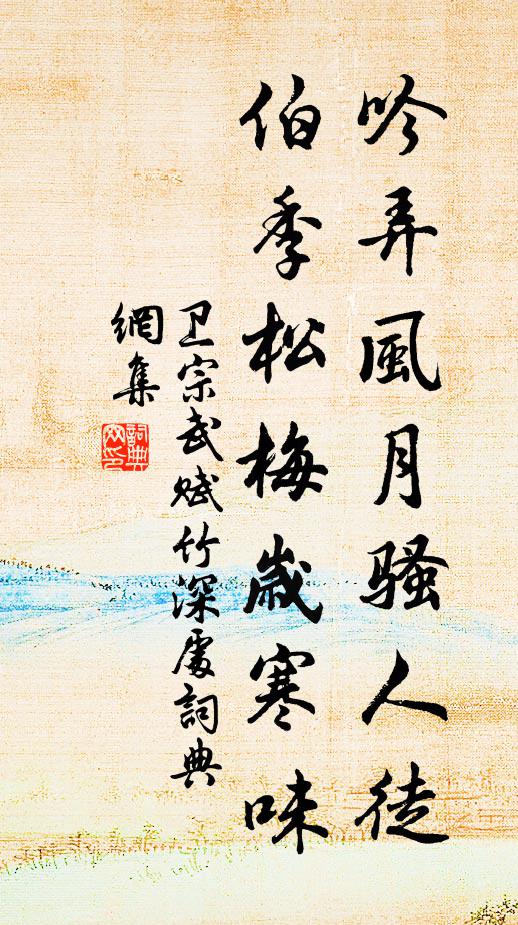 吟弄風月騷人徒
伯季松梅歲寒味
卫宗武赋竹深處詞典
網集
詞典